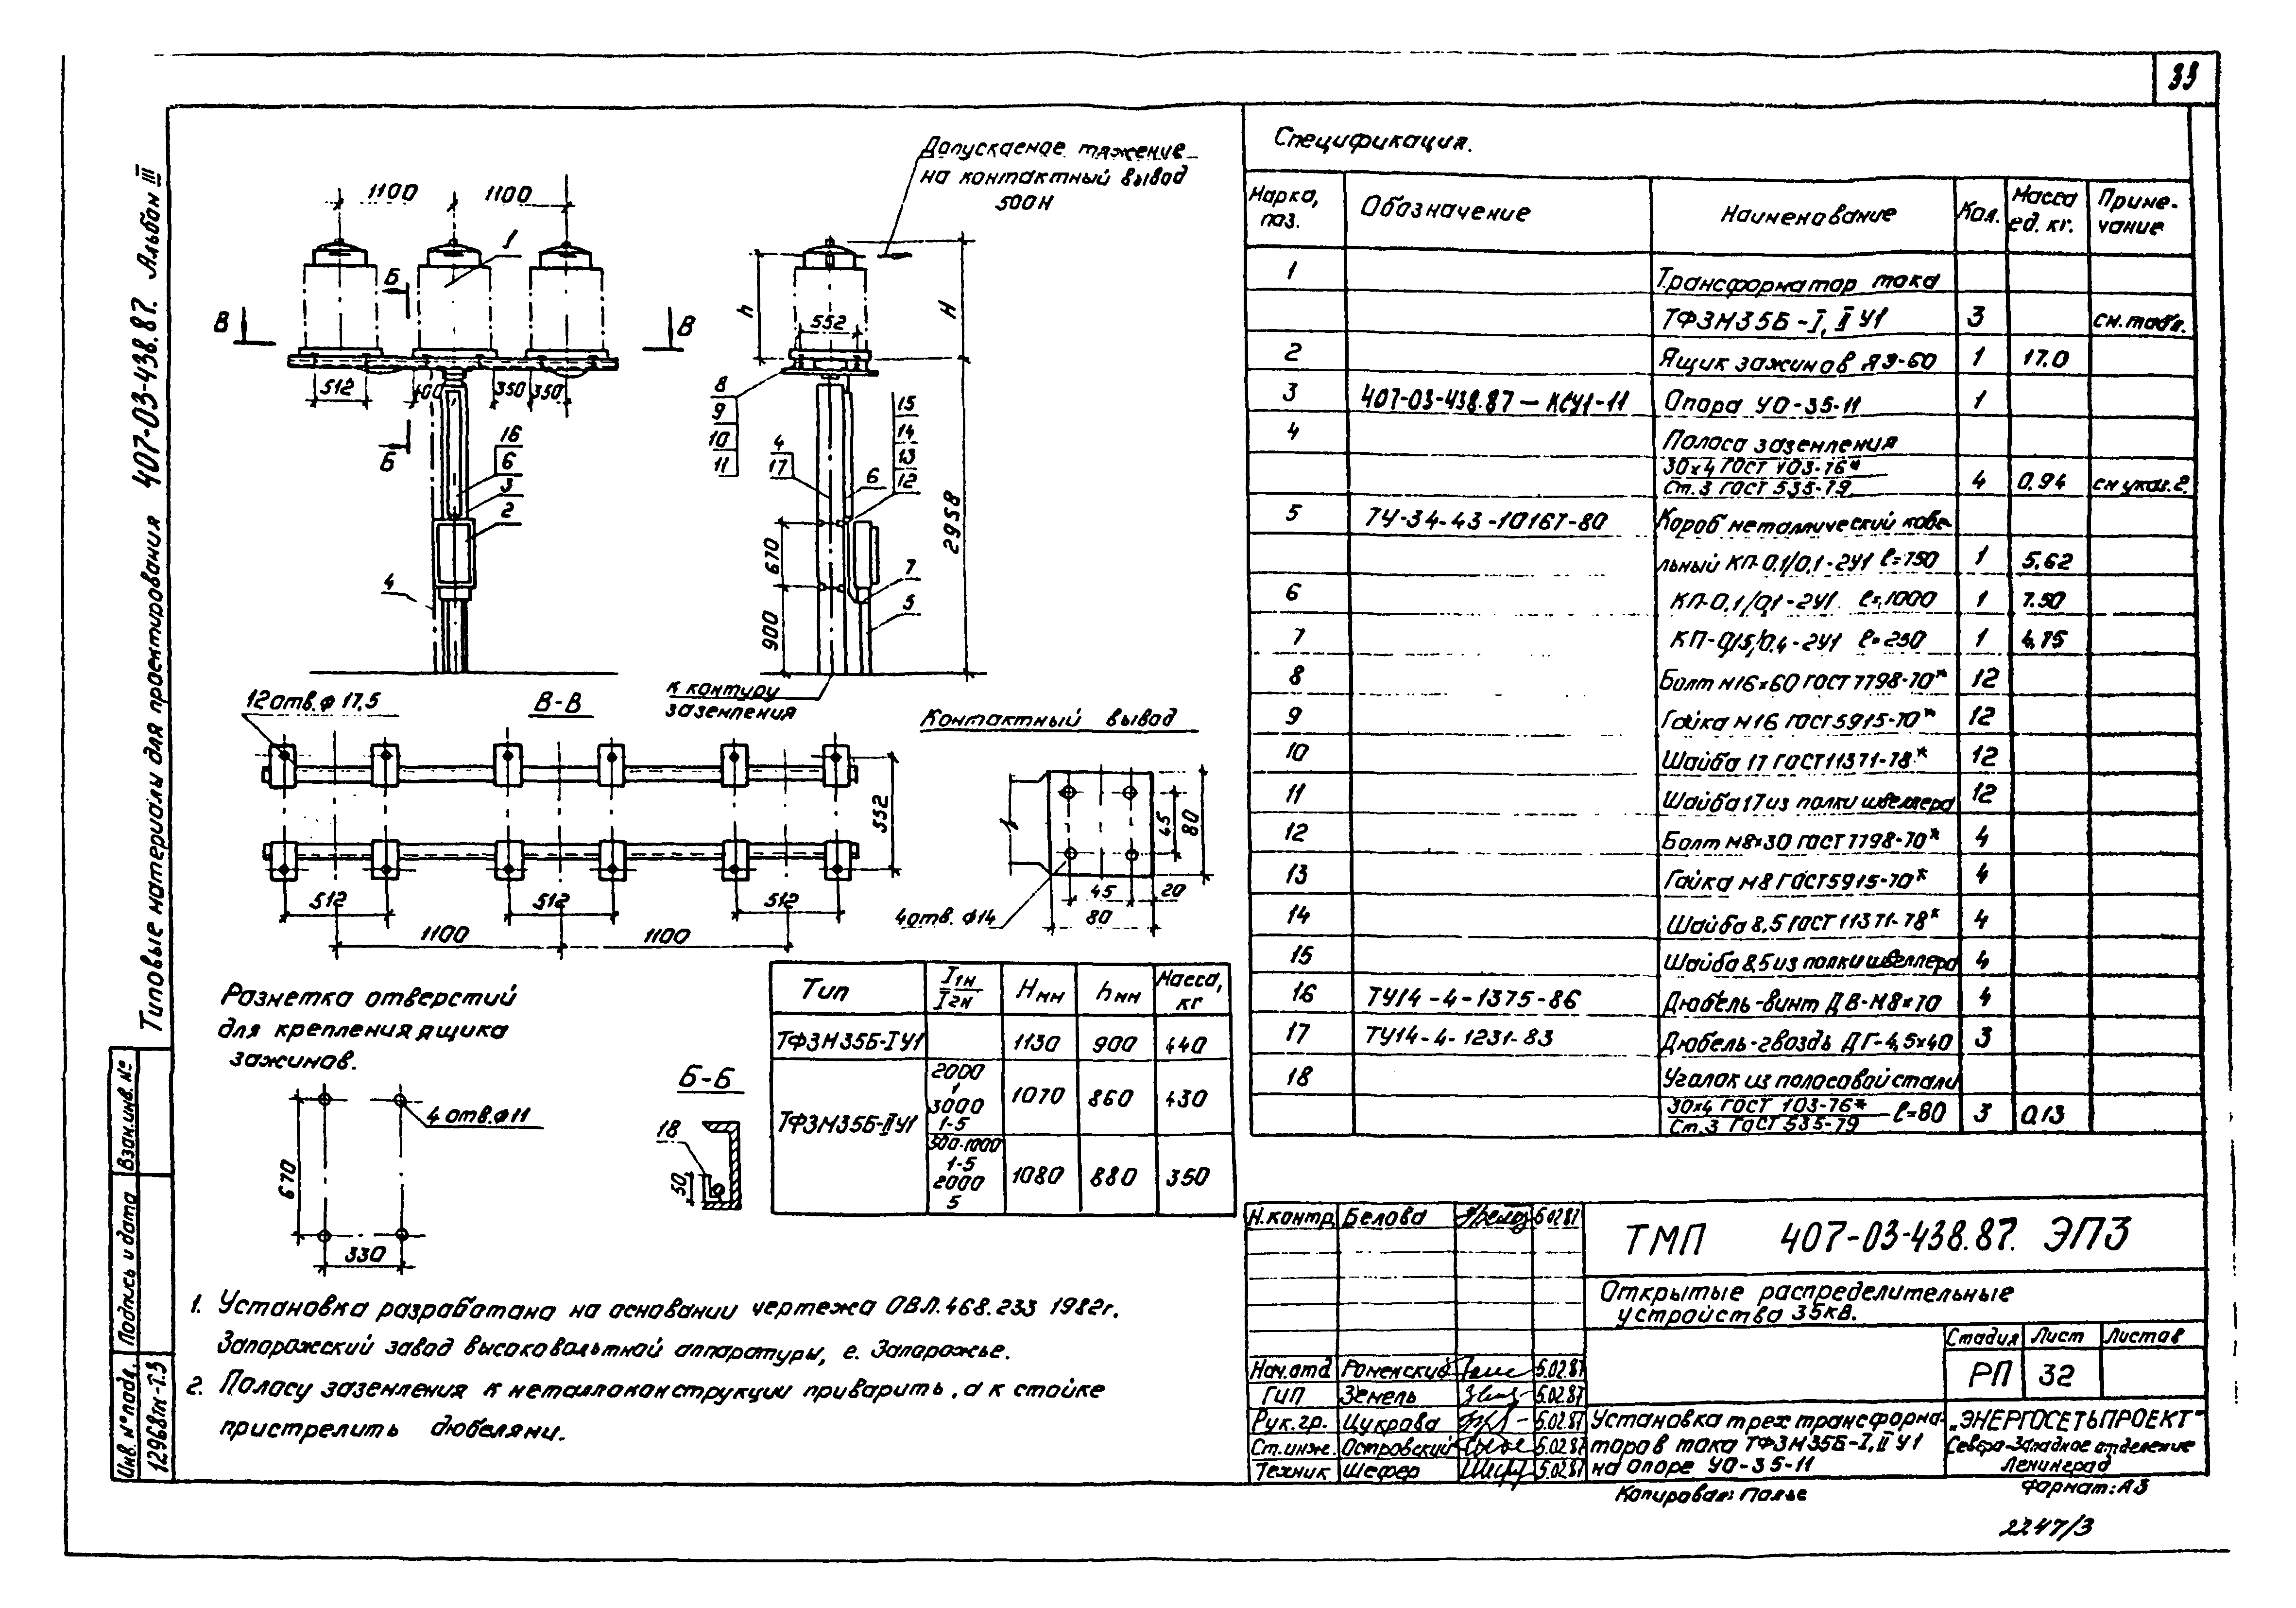 33
Типовые материалы для проектирования 407-03-438.87. Альбом III
1100
1100
1
Б
В
В
512
400
350
350
Б
16
6
3
2
4
Допускаемое тяжение
на контактный вывод
500Н
h
552
H
8
9
10
11
4
17
15
14
13
12
6
670
2958
7
5
900
к контуру
заземления
12 отв. ф 17,5
В-В
552
512
512
512
1100
1100
Контактный вывод
45
80
45
20
80
4 отв. ф14
Разметка отверстий
для крепления ящика
зажимов.
4 отв. ф11
670
330
Б-Б
18
50
Тип I1н/I2н Hмм hмм Масса, кг
ТФЗМ35Б-I У1 1130 900 440
ТФЗМ35Б-II У1 2000 1 3000 1-5 1070 860 430
500-1000 1-5 2000 5 1080 880 350
1. Установка разработана на основании чертежа ОВЛ.468.233 1982г.
Запорожский завод высоковольтной аппаратуры, г. Запорожье.
2. Полосу заземления к металлоконструкции приварить, а к стойке
пристрелить дюбелями.
Спецификация.
Марка, поз. Обозначение Наименование Кол. Масса ед. кг. Примечание
1 Трансформатор тока
ТФЗМ35Б-I, II У1 3 см. табл.
2 Ящик зажимов ЯЗ-60 1 17.0
3 407-03-438.87 – КСУ1-11 Опора УО-35-11 1
4 Полоса заземления
30х4 ГОСТ 103-76*
Ст.3 ГОСТ 535-79 4 0.94 см указ.2.
5 ТУ-34-43-10167-80 Короб металлический кабе-
льный КП-0,1/0,1-2У1 ℓ=750 1 5.62
6 КП-0,1/0,1-2У1 ℓ=1000 1 7.50
7 КП-0,15/0,4-2У1 ℓ=250 1 4,75
8 Болт М16х60 ГОСТ 7798-70* 12
9 Гайка М16 ГОСТ 5915-70* 12
10 Шайба 17 ГОСТ 11371-78* 12
11 Шайба 17 из полки швеллера 12
12 Болт М8х30 ГОСТ 7798-70* 4
13 Гайка М8 ГОСТ 5915-70* 4
14 Шайба 8,5 ГОСТ 11371-78* 4
15 Шайба 8,5 из полки швеллера 4
16 ТУ14-4-1375-86 Дюбель-винт ДВ-М8х70 4
17 ТУ14-4-1231-83 Дюбель-гвоздь ДГ-4,5х40 3
18 Уголок из полосовой стали
30х4 ГОСТ 103-76*
Ст.3 ГОСТ 535-79 ℓ=80 3 0,13
Н.контр. Белова 5.02.87
Нач.отд Роменский 5.02.87
ГИП Земель 5.02.87
Рук.гр. Цукрова 5.02.87
Ст.инж. Островский 5.02.87
Техник Шефер 5.02.87
ТМП 407-03-438.87. ЭПЗ
Открытые распределительные
устройства 35кВ.
Стадия Лист Листов
РП 32
Установка трех трансформа-
торов тока ТФЗМ35Б-I, II У1
на опоре УО-35-11
„ЭНЕРГОСЕТЬПРОЕКТ"
Северо-Западное отделение
Ленинград
Копировал: Полье
Формат: А3
2247/3
Взам.инв. №
Подпись и дата
Инв. № подл.
12968тм-т.3